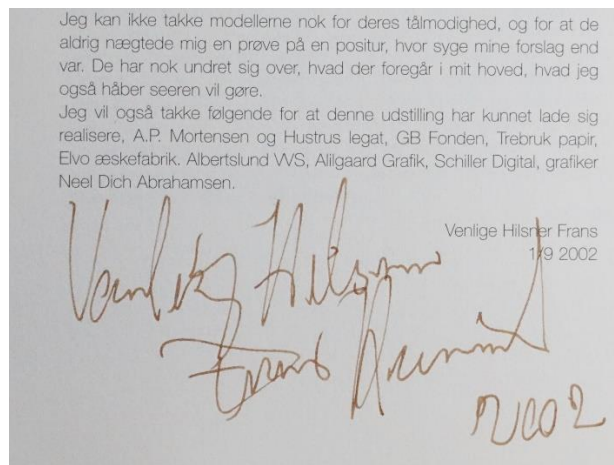 Jeg kan ikke takke modellerne nok for deres tålmodighed, og for at de
aldrig nægtede mig en prøve på en positur, hvor syge mine forslag end
var. De har nok undret sig over, hvad der foregår i mit hoved, hvad jeg
også håber seeren vil gøre.
Jeg vil også takke følgende for at denne udstilling har kunnet lade sig
realisere, A.P. Mortensen og Hustrus legat, GB Fonden, Trebruk papir,
Elvo æskefabrik. Albertslund VVS, Alilgaard Grafik, Schiller Digital, grafiker
Neel Dich Abrahamsen.
Venlige Hilsner Frans
1/9 2002
Venlig Hilsen
Frans
2002